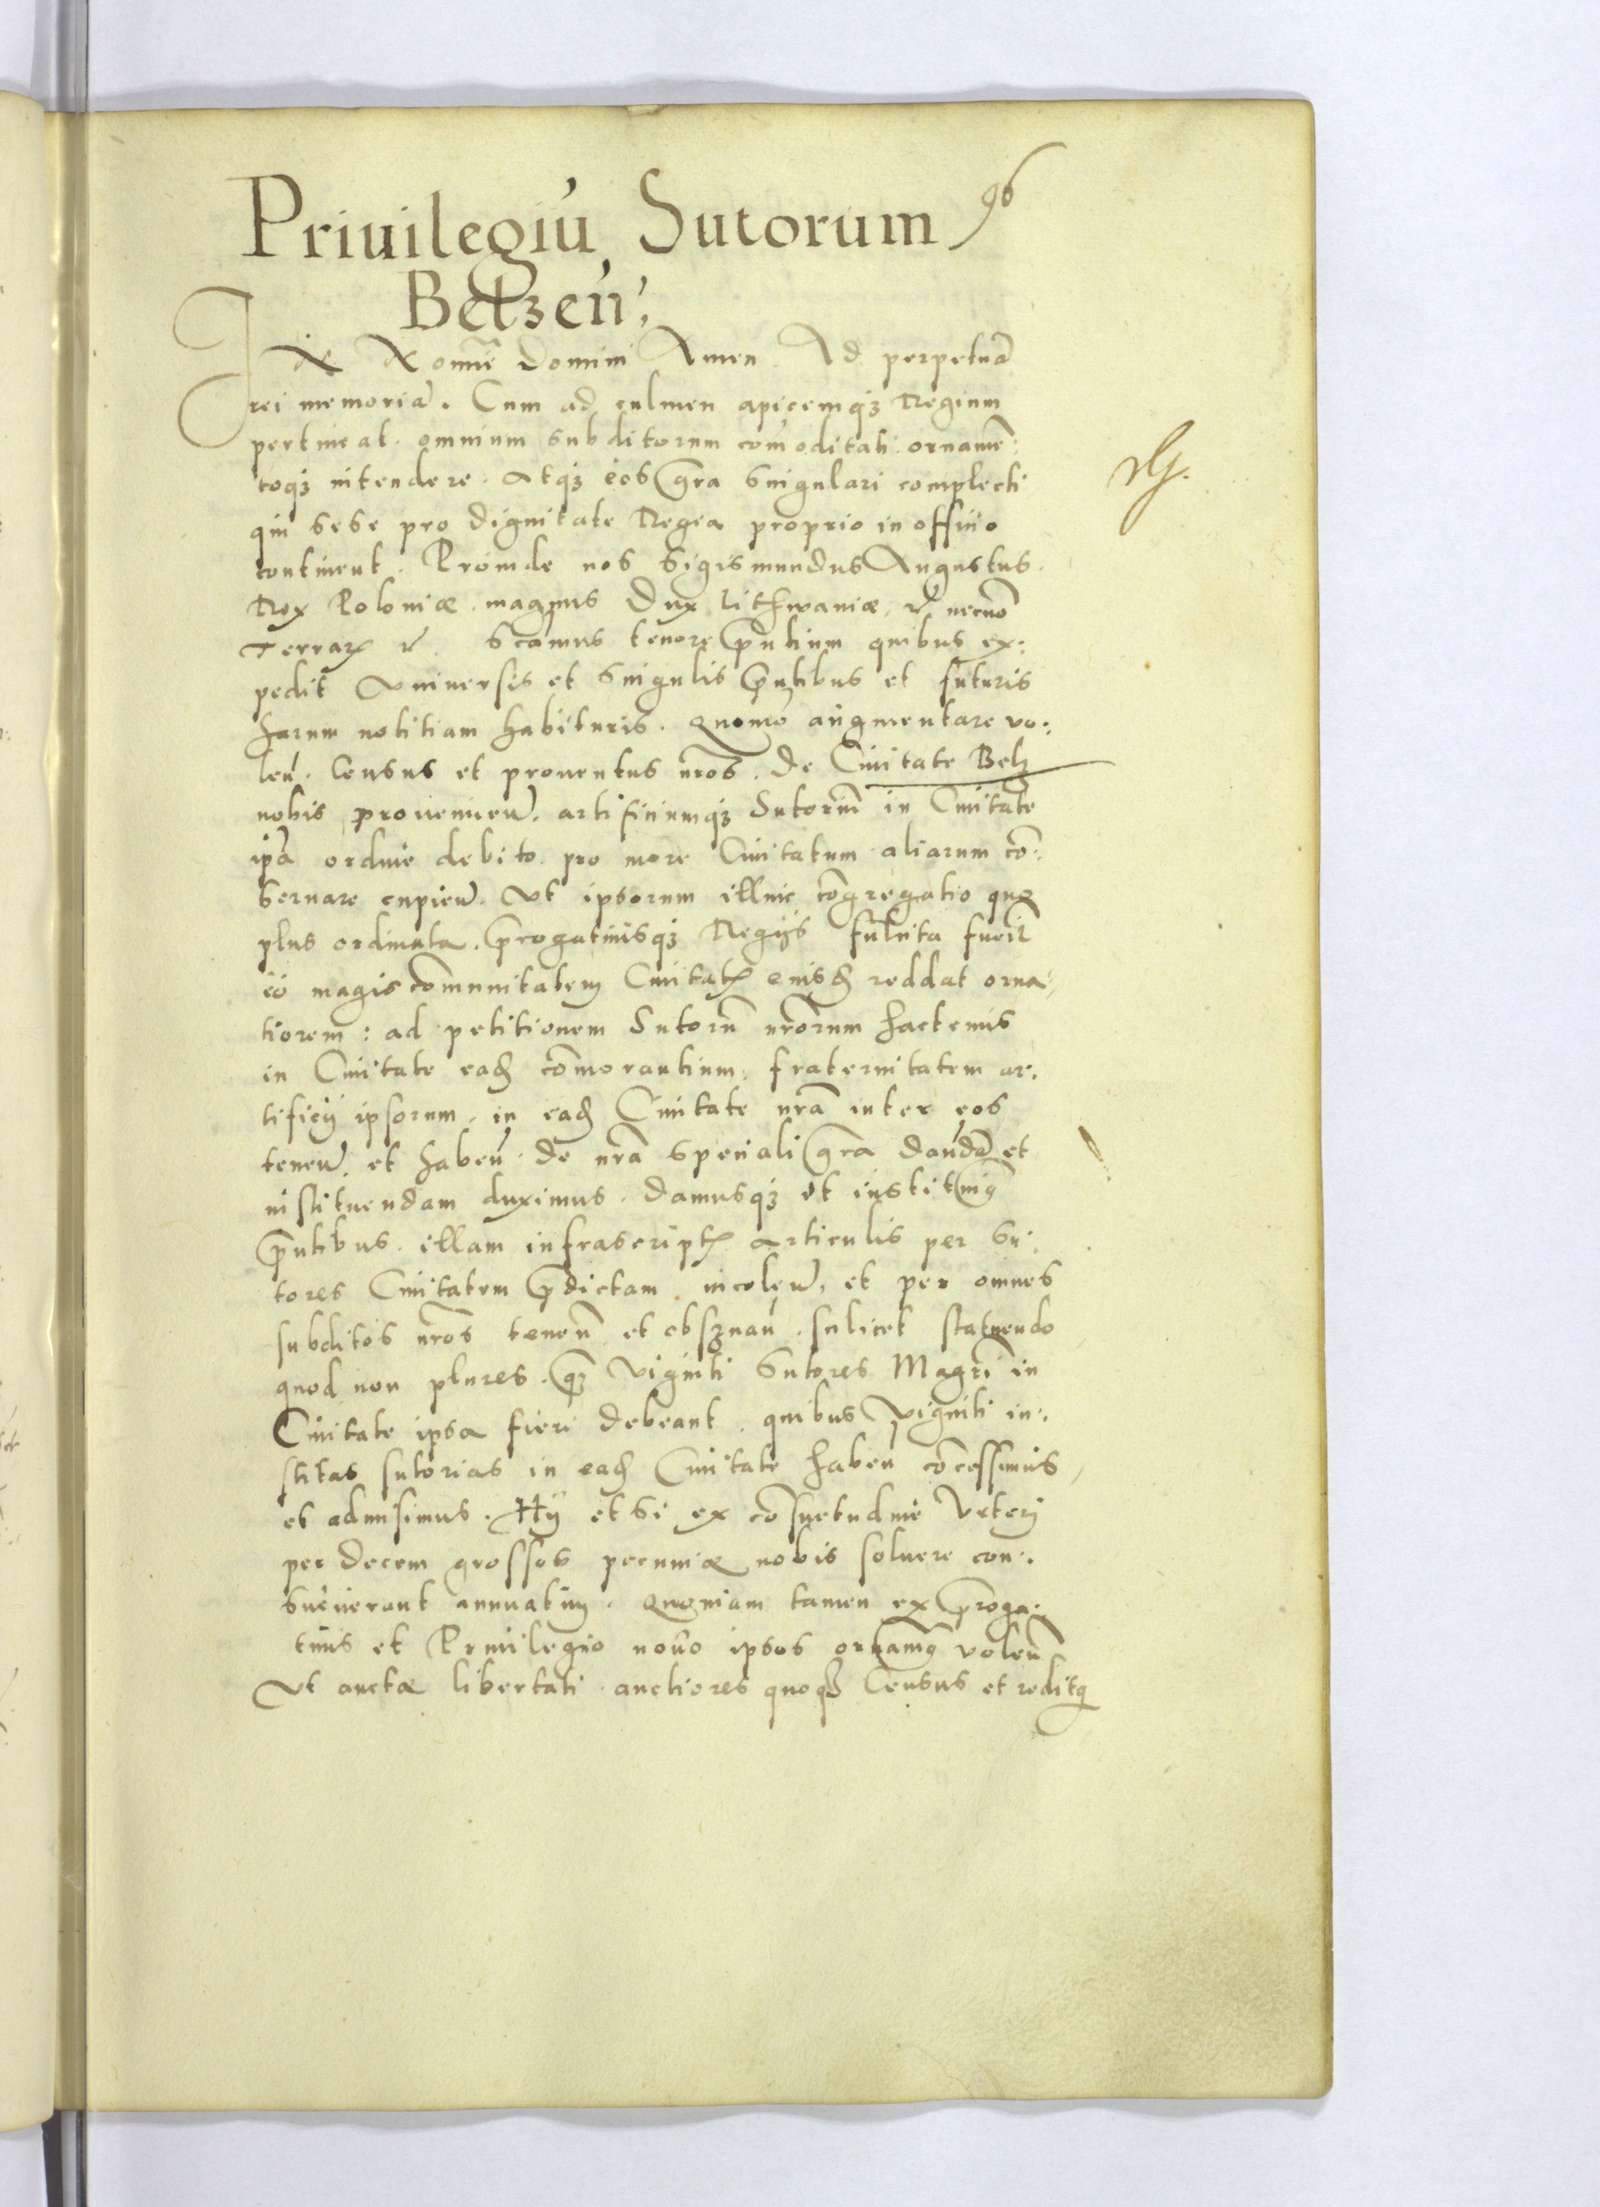 96
Priuilegiū Sutorum
Belzeñ.
In Nomīe Domini Amen Ad perpetuā
rei memoriā. Cum ad culmen apicemqꝫ Regium
pertineat omnium subditorum com̄oditati ornamē:
toqꝫ intendere. Atqꝫ eos gr̄a singulari complecti
qui sese pro dignitate Regia proprio in officio
continent. Proinde nos Sigismundus Augustus.
Rex Poloniæ magnus Dux Lithwaniæ, &c necnō
Terrarꝫ &c. Sc̄amus tenore pn̄tium quibus ex:
pedit Vniuersis et singulis pn̄tibus et futuris
harum notitiam habituris. Quomō augmentare vo:
leñ. Census et prouentus nr̄os. de Ciuitate Belz
nobis prouenieñ. artificiumqꝫ Sutorum in Ciuitate
ip̄a ordine debito pro more Ciuitatum aliarum cō:
seruare cupieñ. Vt ipsorum illuic cōgregatio quo
plus ordinata. pr̄ogatiuisqꝫ Regijs fulcita fuerit
eo magis com̄unitatem Ciuitatꝭ eiusd̄ reddat orna:
tiorem: ad petitionem Sutorū nr̄orum hactenus
in Ciuitate ead̄ com̄orantium. fraternitatem ar:
tificij ipsorum. in ead̄ Ciuitate nr̄a inter eos
teneñ. et habeñ. de nr̄a speciali gr̄a dandā et
instituendam duximus. damusqꝫ et instituimꝰ
pn̄tibus. illam infrascriptꝭ articulis per Su:
tores Ciuitatem p̄dictam incoleñ. et per omnes
subditos nr̄os teneñ et obseruañ. scilicet statuendo
quod non plures. qꝫ viginti Sutores Magr̄i in
Ciuitate ipsa fieri debeant. quibus viginti in:
stitas sutorias in ead̄ Ciuitate habeñ cōcessimus
et admisimus. Hij etsi ex cōsuetudine Veteri
per decem grossos pecuniæ nobis soluere con:
sueuerant annuatim. Quoniam tamen ex pr̄oga:
tiuis et Priuilegio nouo ipsos ornamꝰ voleñ
Vt auctæ libertati auctiores quoqꝫ Census et redditꝰ